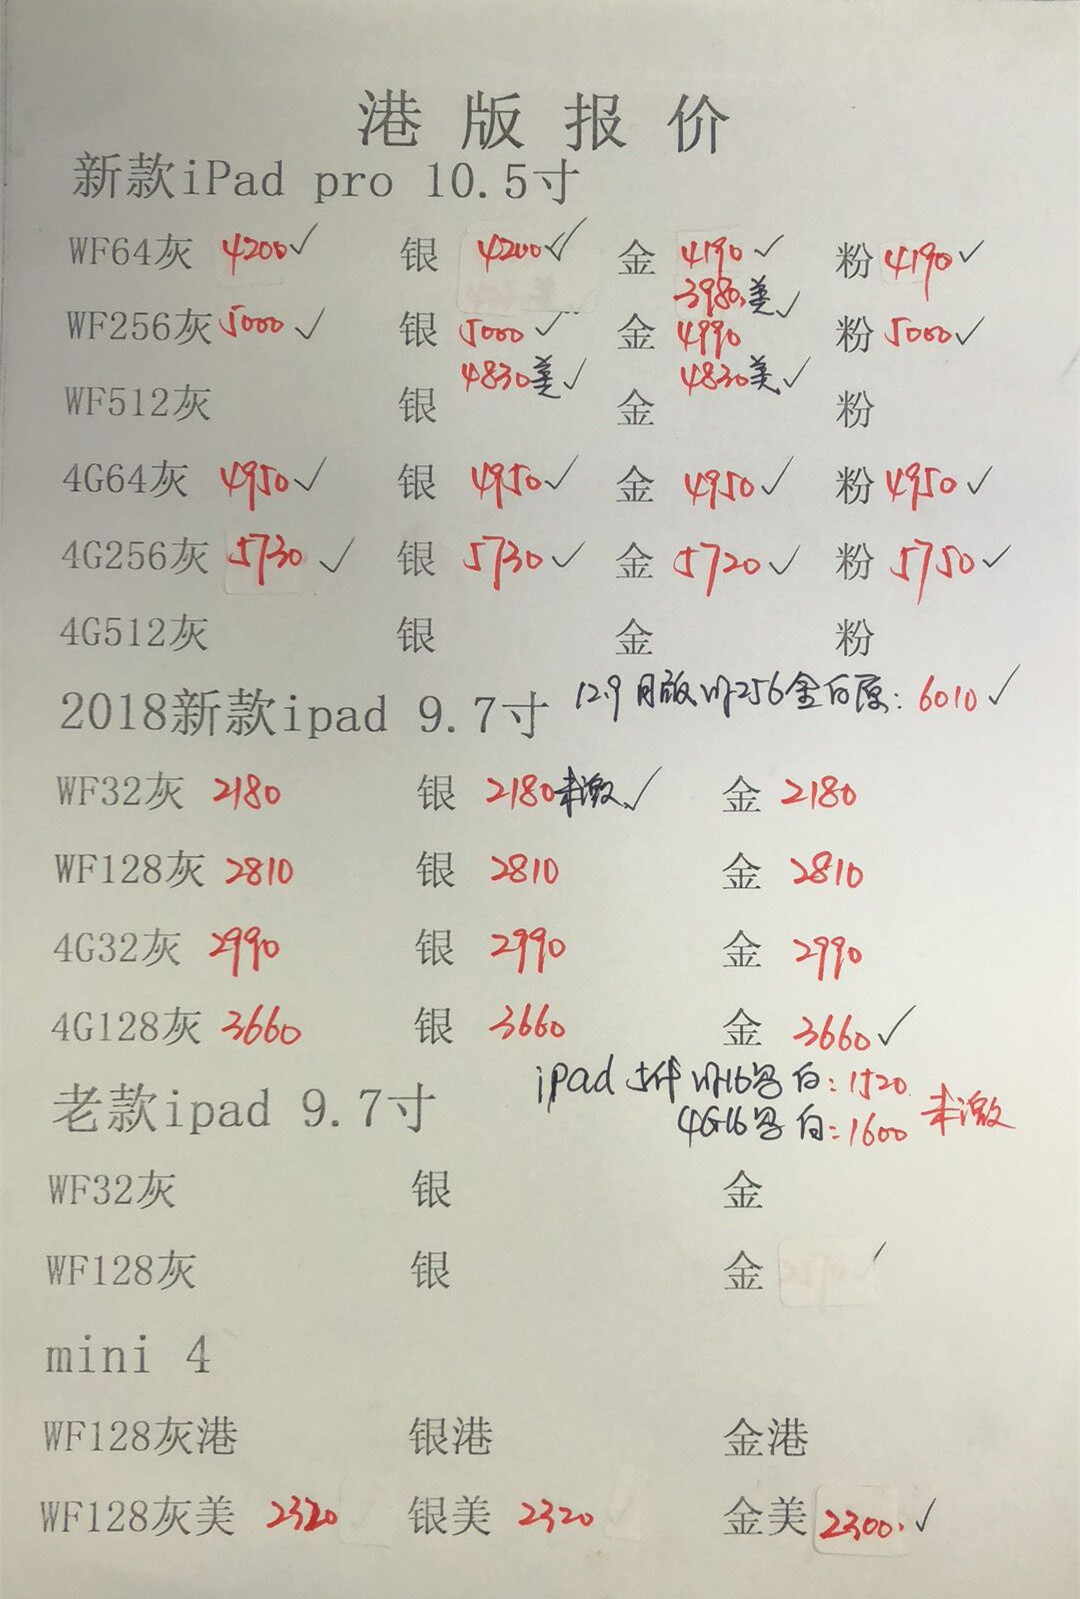 港版报价
新款iPad pro 10.5寸
WF64灰 4200✓ 银 4200✓ 金 4190✓ 粉 4190✓
3980.美✓
WF256灰 5000✓ 银 5000✓ 金 4990 粉 5000✓
4830美✓ 4830美✓
WF512灰 银 金 粉
4G64灰 4950✓ 银 4950✓ 金 4950✓ 粉 4950✓
4G256灰 5730✓ 银 5730✓ 金 5720✓ 粉 5750✓
4G512灰 银 金 粉
2018新款ipad 9.7寸 12.9 256金白原: 6010✓
WF32灰 2180 银 2180未激✓ 金 2180
WF128灰 2810 银 2810 金 2810
4G32灰 2990 银 2990 金 2990
4G128灰 3660 银 3660 金 3660✓
ipad 5代 16 白: 1520
老款ipad 9.7寸 未激
4G16 白: 1600
WF32灰 银 金
WF128灰 银 金 ✓
mini 4
WF128灰港 银港 金港
WF128灰美 2320 银美 2320 金美 2300.✓